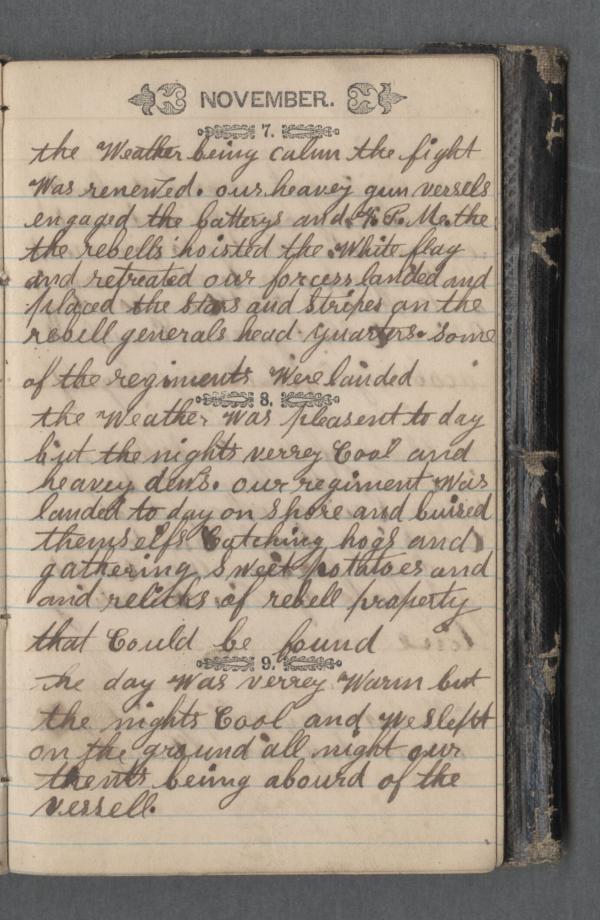 NOVEMBER.
7.
the Weather being calun the fight
Was renewed. our heavey gun vessels
engaged the batterys and P. M. the
the rebells hoisted the White flag
and retreated our forcess landed and
placed the Stars and Stripes on the
rebell generals head quarters. Some
of the regiments Were landed
8.
the Weather Was pleasent to day
but the nights verrey Cool and
heavey dews. our regiment Was
landed to day on Shore and buised
themselfs Catching hogs and
gathering sweet potatoes and
and relicks of rebell property
that Could be found
9.
the day Was verrey Warm but
the nights Cool and We slept
on the ground all night our
thents being abourd of the
vessell.